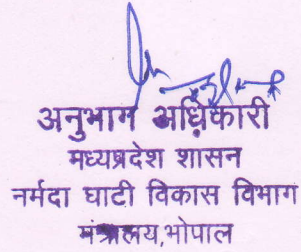 अनुभाग अधिकारी
मध्यप्रदेश शासन
नर्मदा घाटी विकास विभाग
मंत्रालय,भोपाल